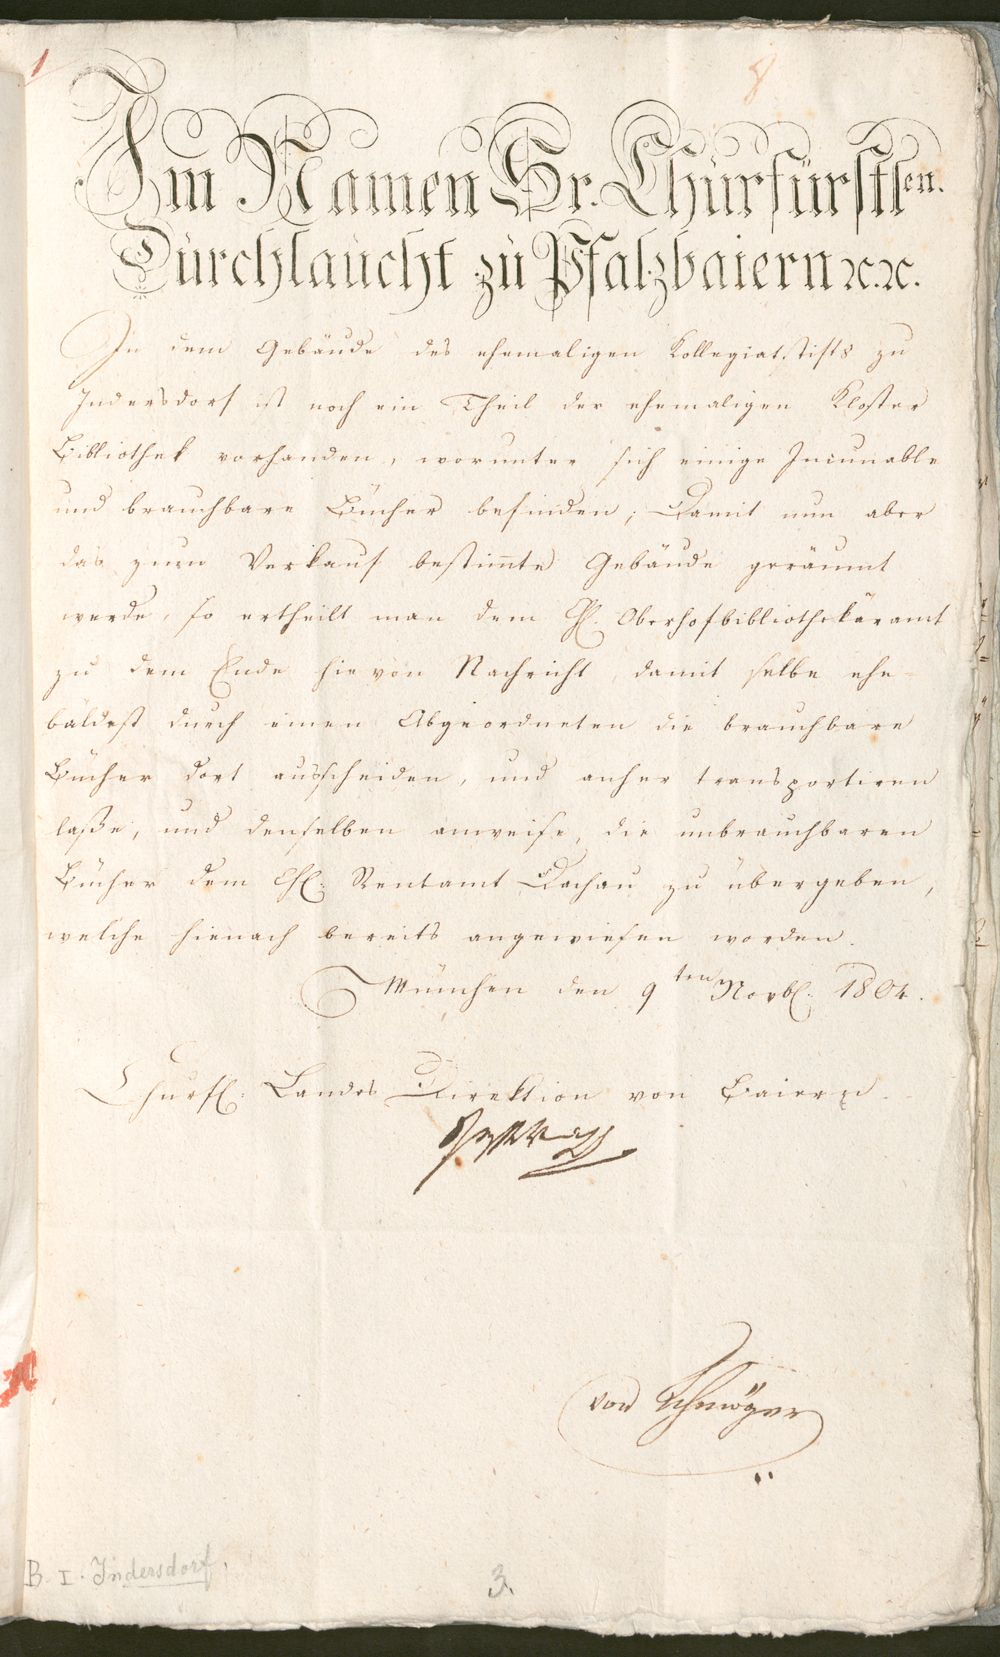 1
8
Im Namen Sr. Churfürstlen.
Durchlaucht zu Pfalzbaiern ꝛc. ꝛc.
In dem Gebäude des ehemaligen Kollegiat.stifts zu
Indersdorf ist noch ein Theil der ehemaligen Kloster
Bibliothek vorhanden, worunter sich einige Incunable
und brauchbare Bücher befinden; Damit nun aber
das zum Verkauf bestim̅te Gebäude geräumt
werde, so ertheilt man dem Oberhofbibliothekäramt
zu dem Ende hievon Nachricht, damit selbe ehe-
baldest durch einen Abgeordneten die brauchbare
Bücher dort ausscheiden, und anher transportiren
laße, und denselben anweise, die unbrauchbaren
Bücher dem Chl: Rentamt Dachau zu übergeben,
welche hienach bereits angewiesen worden.
München den 9ten Novbl. 1804.
Churfl: Landes Direktion von Baiern.
von Schmöger
B. I. Indersdorf.
3.